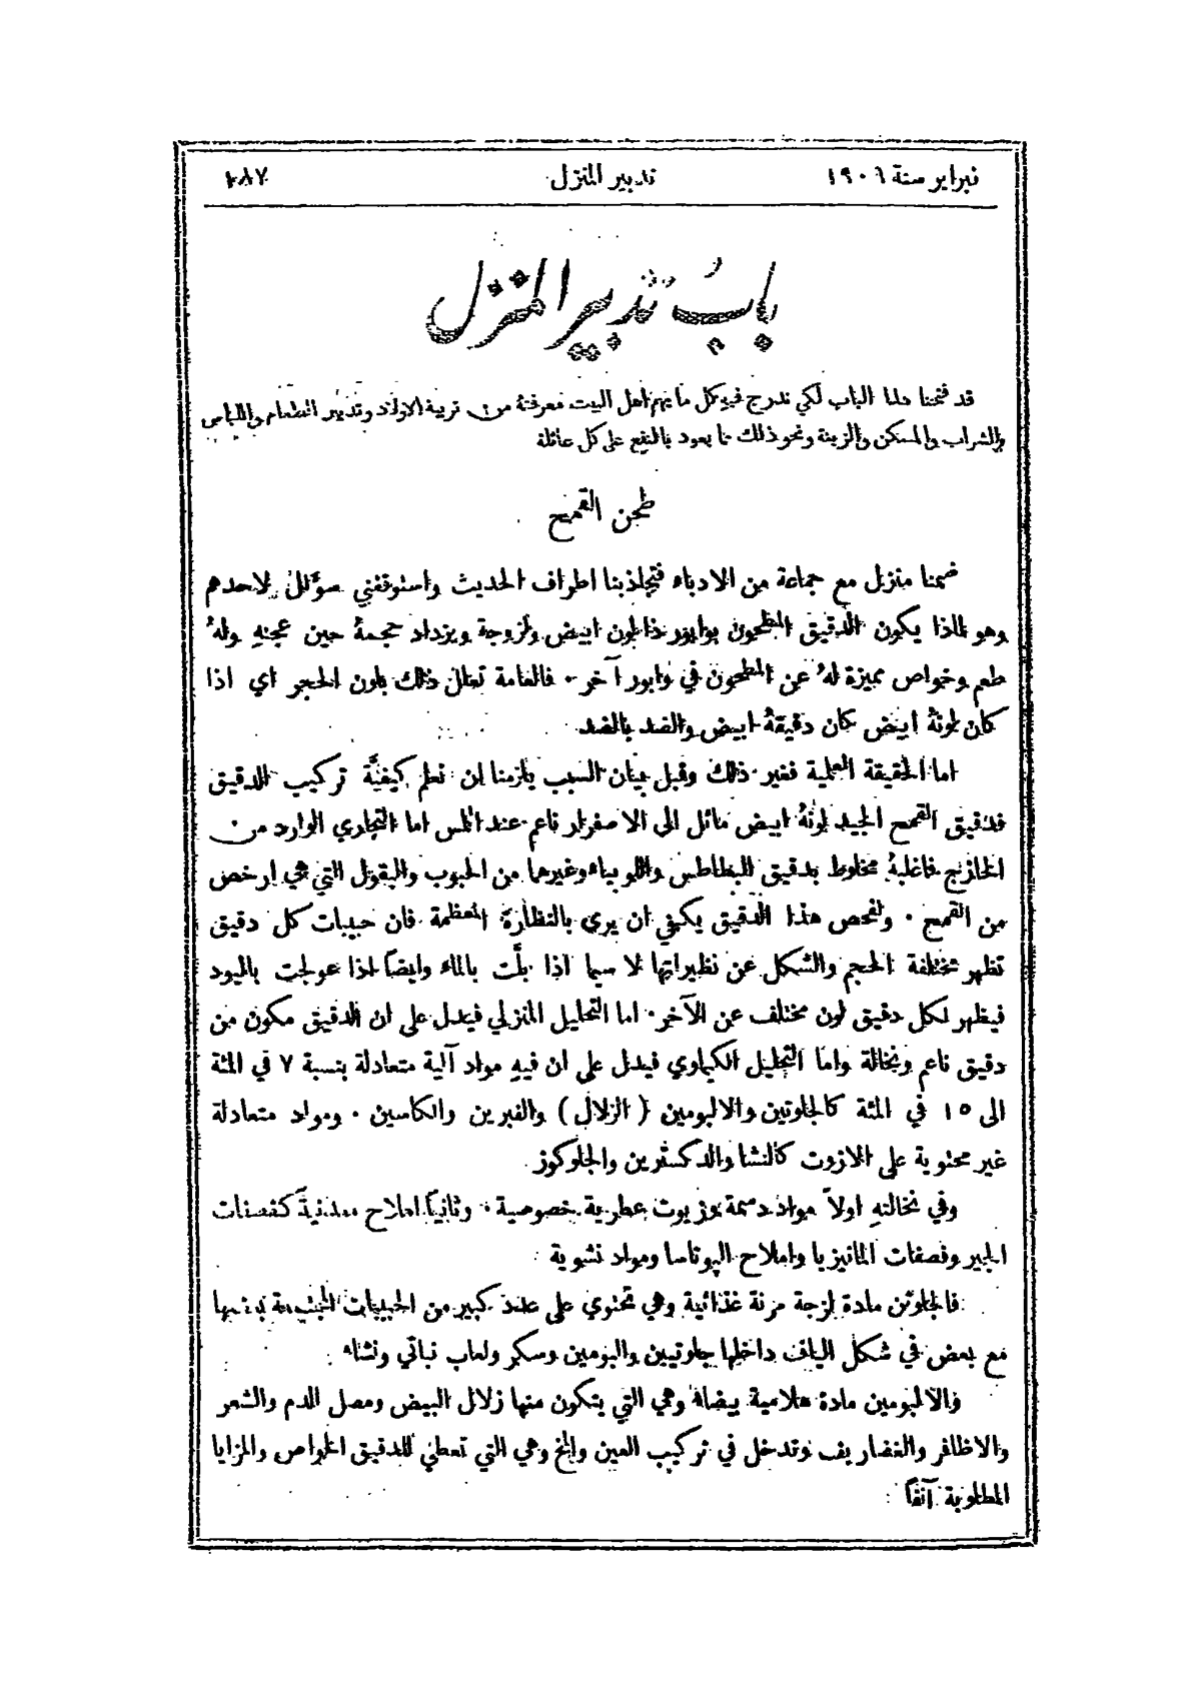 فبراير سنة ١٩٠٦ تدبير المنزل ١٨٧
باب تدبير المنزل
قد فتحنا هذا الباب لكي ندرج فيه كل ما يهم اهل البيت معرفته من تربية الاولاد وتدبير الطعام واللباس
والشراب والمسكن والزينة ونحو ذلك مما يعود بالنفع على كل عائلة
طحن القمح
ضمنا منزل مع جماعة من الادباء فتجاذبنا اطراف الحديث واستوقفني سؤال لاحدهم
وهو لماذا يكون الدقيق المطحون بوابور ذا لون ابيض ولزوجة ويزداد حجمهُ حين عجنهِ ولهُ
طعم وخواص مميزة لهُ عن المطحون في وابور آخر ٠ فالعامة تعلل ذلك بلون الحجر اي اذا
كان لونهُ ابيض كان دقيقهُ ابيض والضد بالضد
اما الحقيقة العلمية فغير ذلك وقبل بيان السبب يلزمنا ان نعلم كيفيَّة تركيب الدقيق
فدقيق القمح الجيد لونهُ ابيض مائل الى الاصفرار ناعم عند اللمس اما التجاري الوارد من
الخارج فاغلبهُ مخلوط بدقيق البطاطس واللوبياء وغيرها من الحبوب والبقول التي هي ارخص
من القمح ٠ ولفحص هذا الدقيق يكفي ان يرى بالنظارة المعظمة فان حبيبات كل دقيق
تظهر مختلفة الحجم والشكل عن نظيراتها لا سيما اذا بلَّت بالماء وايضاً اذا عولجت باليود
فيظهر لكل دقيق لون مختلف عن الآخر ٠ اما التحليل المنزلي فيدل على ان الدقيق مكون من
دقيق ناعم ونخالة واما التحليل الكيماوي فيدل على ان فيهِ مواد آلية متعادلة بنسبة ٧ في المئة
الى ١٥ في المئة كالجلوتين والالبومين ( الزلال ) والفبرين والكاسين ٠ ومواد متعادلة
غير محتوية على الازوت كالنشا والدكسترين والجلوكوز
وفي نخالتهِ اولاً مواد دسمة وزيوت عطرية خصوصية ٠ وثانياً املاح معدنية كفصفات
الجير وفصفات المانيزيا واملاح البوتاسا ومواد نشوية
فالجلوتن مادة لزجة مرنة غذائية وهي تحتوي على عدد كبير من الحبيبات المجتمعة بعضها
مع بعض في شكل الياف داخلها جلوتيين والبومين وسكر ولعاب نباتي ونشاء
والالبومين مادة هلامية بيضاء وهي التي يتكون منها زلال البيض ومصل الدم والشعر
والاظافر والغضاريف وتدخل في تركيب العين والمخ وهي التي تعطي للدقيق الخواص والمزايا
المطلوبة آنفاً